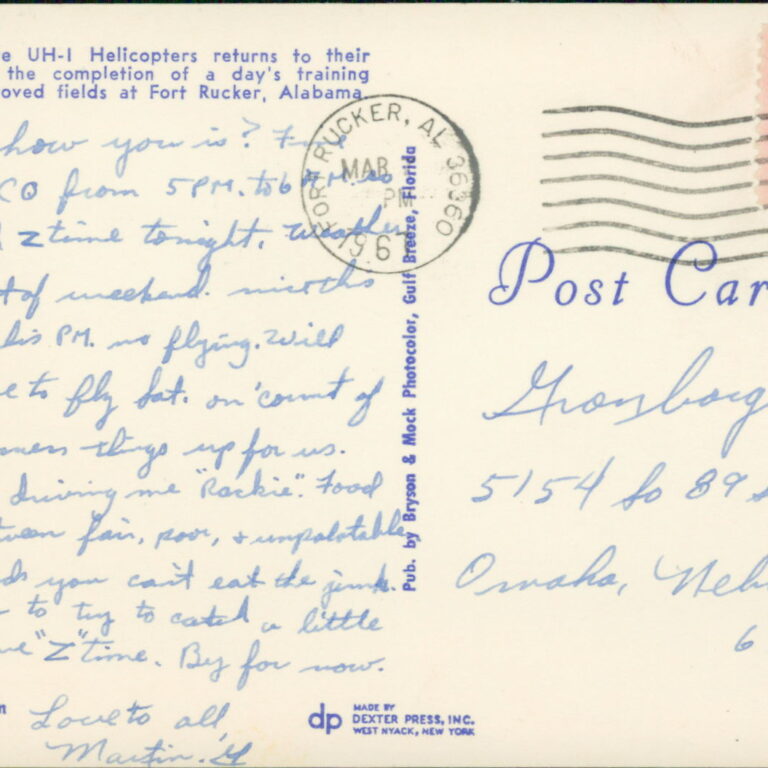 e UH-1 Helicopters returns to their
the completion of a day's training
oved fields at Fort Rucker, Alabama.
how you is? Fine
CQ from 5 PM. to 6
z time tonight. Weather
t of weekend.
his PM. no flying. Will
e to fly Sat. on 'count of
things up for us.
driving me "Rackie". Food
tween fair, poor, & unpalatable
ds you can't eat the junk.
to try to catch a little
"Z" time. By for now.
Love to all,
Martin.
FORT RUCKER, AL 36360
MAR
PM
196
Pub. by Bryson & Mock Photocolor, Gulf Breeze, Florida
dp MADE BY
DEXTER PRESS, INC.
WEST NYACK, NEW YORK
Post Car
5154 So 89
Omaha, Neb
6